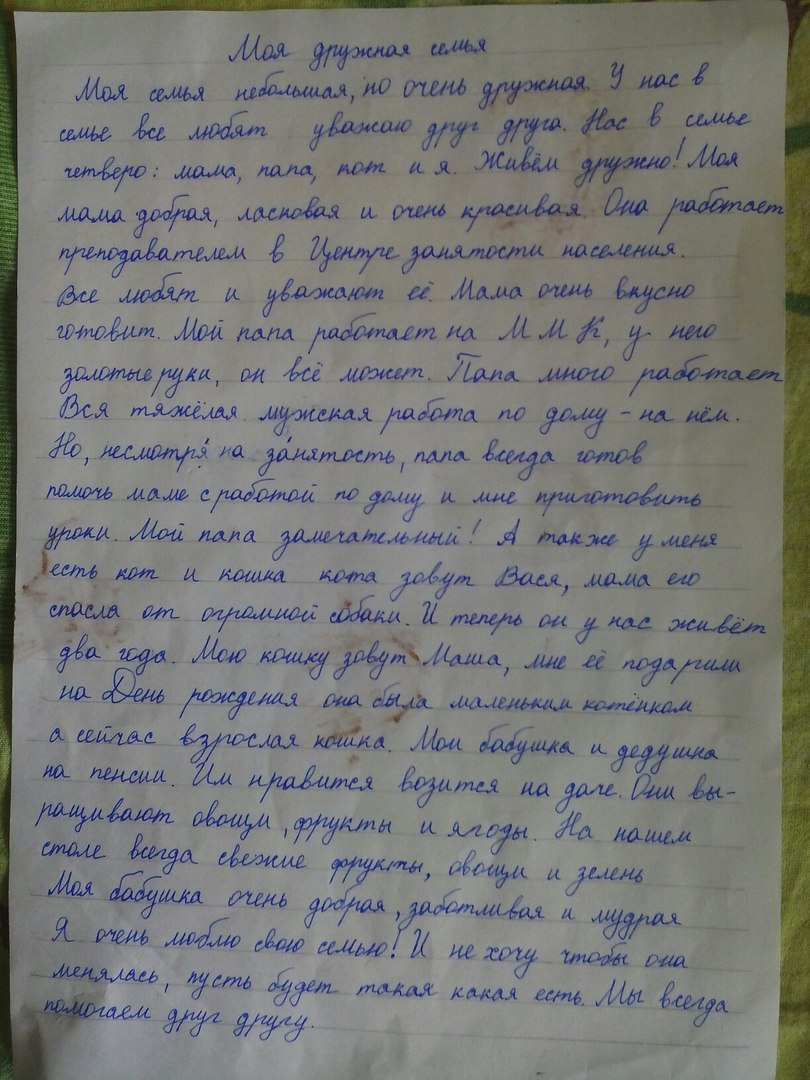 Моя дружная семья
Моя семья небольшая, но очень дружная. У нас в
семье все любят уважаю друг друга. Нас в семье
четверо: мама, папа, кот и я. Живём дружно! Моя
мама добрая, ласковая и очень красивая. Она работает
преподавателем в Центре занятости населения.
Все любят и уважают её. Мама очень вкусно
готовит. Мой папа работает на ММК, у него
золотые руки, он всё может. Папа много работает
Вся тяжёлая мужская работа по дому - на нём.
Но, несмотря́ на за́нятость, папа всегда готов
помочь маме с работой по дому и мне приготовить
уроки. Мой папа замечательный! А также у меня
есть кот и кошка кота зовут Вася, мама его
спасла от огромной собаки. И теперь он у нас живёт
два года. Мою кошку зовут Маша, мне её подарили
на День рождения она была маленьким котёнком
а сейчас взрослая кошка. Мои бабушка и дедушка
на пенсии. Им нравится возится на даче. Они вы-
ращивают овощи, фрукты и ягоды. На нашем
столе всегда свежие фрукты, овощи и зелень
Моя бабушка очень добрая, заботливая и мудрая
Я очень люблю свою семью! И не хочу чтобы она
менялась, пусть будет такая какая есть. Мы всегда
помогаем друг другу.